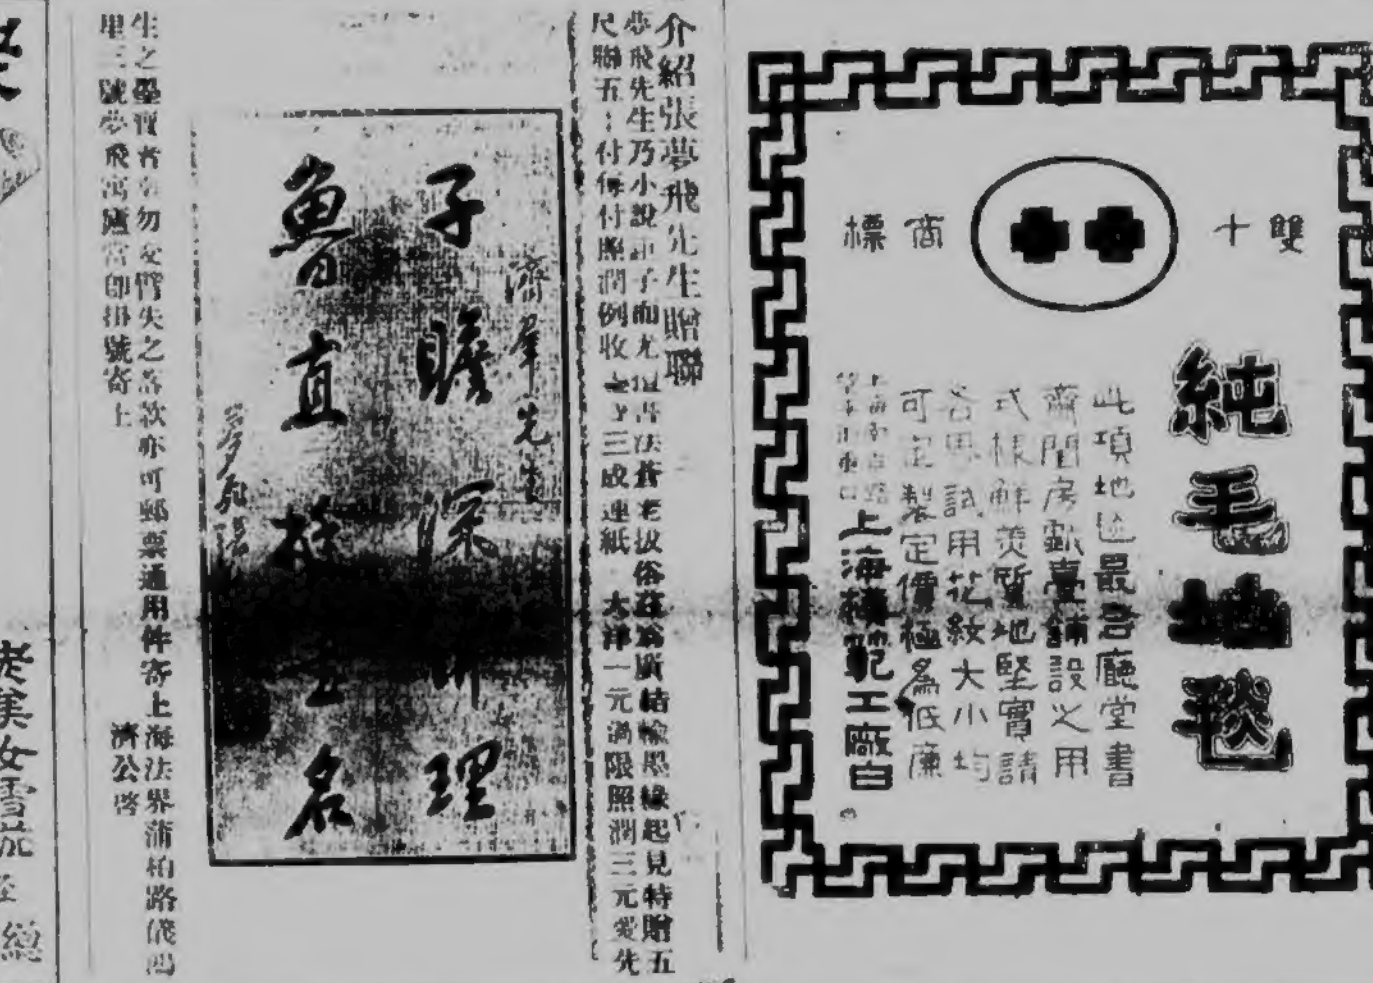 雙十
商標
純毛地毯
此項地毯最合廳堂書
齋閨房戲臺舖設之用
式樣鮮美質地堅實請
各界試用花紋大小均
可定製定價極爲低廉
上海模範工廠白
介紹張夢飛先生贈聯
夢飛先生乃小說鉅子而尤書法蒼老拔俗茲廣結翰墨緣起見特贈五
尺聯五付每付照潤例收三成連紙大洋一元滿限照潤三元愛先
生之墨寶者幸勿交臂失之落款亦可郵票通用件寄上海法界蒲柏路
里三號夢飛寓廬當即掛號寄上
濟公啓
濟羣先生
子瞻深理
魯直名
老美女雪茄
總